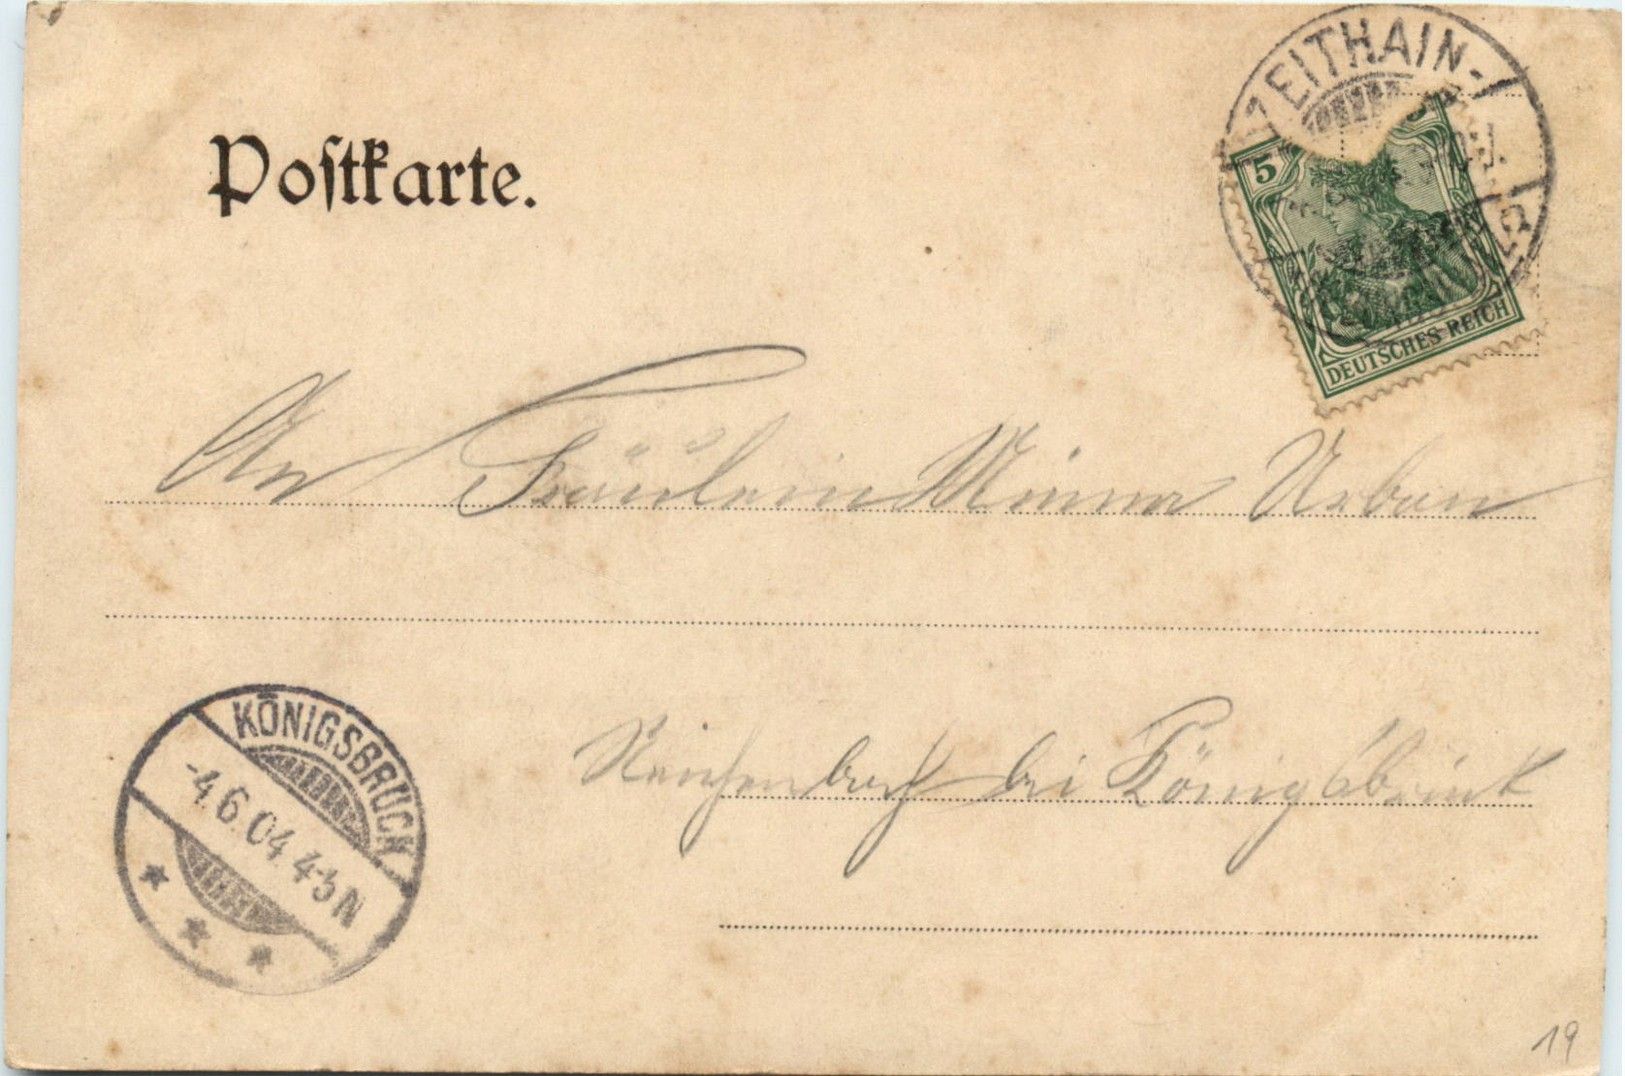 Postkarte.
ZEITHAIN-
5
DEUTSCHES REICH
An Fräulein Minna Urban
Reichenbach bei Königsbrück
KÖNIGSBRÜCK
-4.6.04.4-5N
19